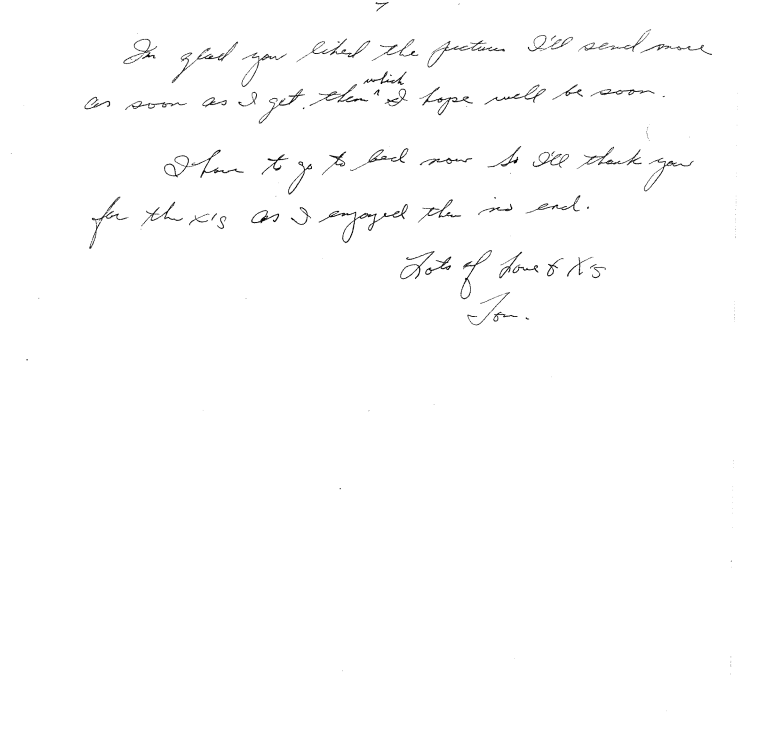 7
I'm glad you liked the pictures I'll send more
as soon as I get them which I hope will be soon.
I have to go to bed now so I'll thank you
for the x's as I enjoyed them no end.
Lots of Love & X's
Tom.